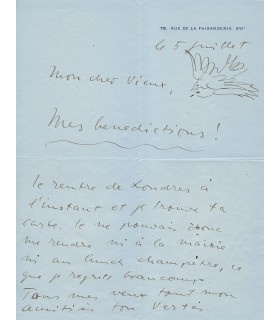 78, RUE DE LA FAISANDERIE, XVIᵉ
le 5 juillet
Mon cher Vieux,
Mes benedictions!
Je rentre de Londres à
l'instant et je trouve ta
carte. Je ne pouvais donc
me rendre ni à la mairie
ni au lunch champêtre, ce
que je regrette beaucoup.
Tous mes vœux tout mon
amitiés ton Vertès